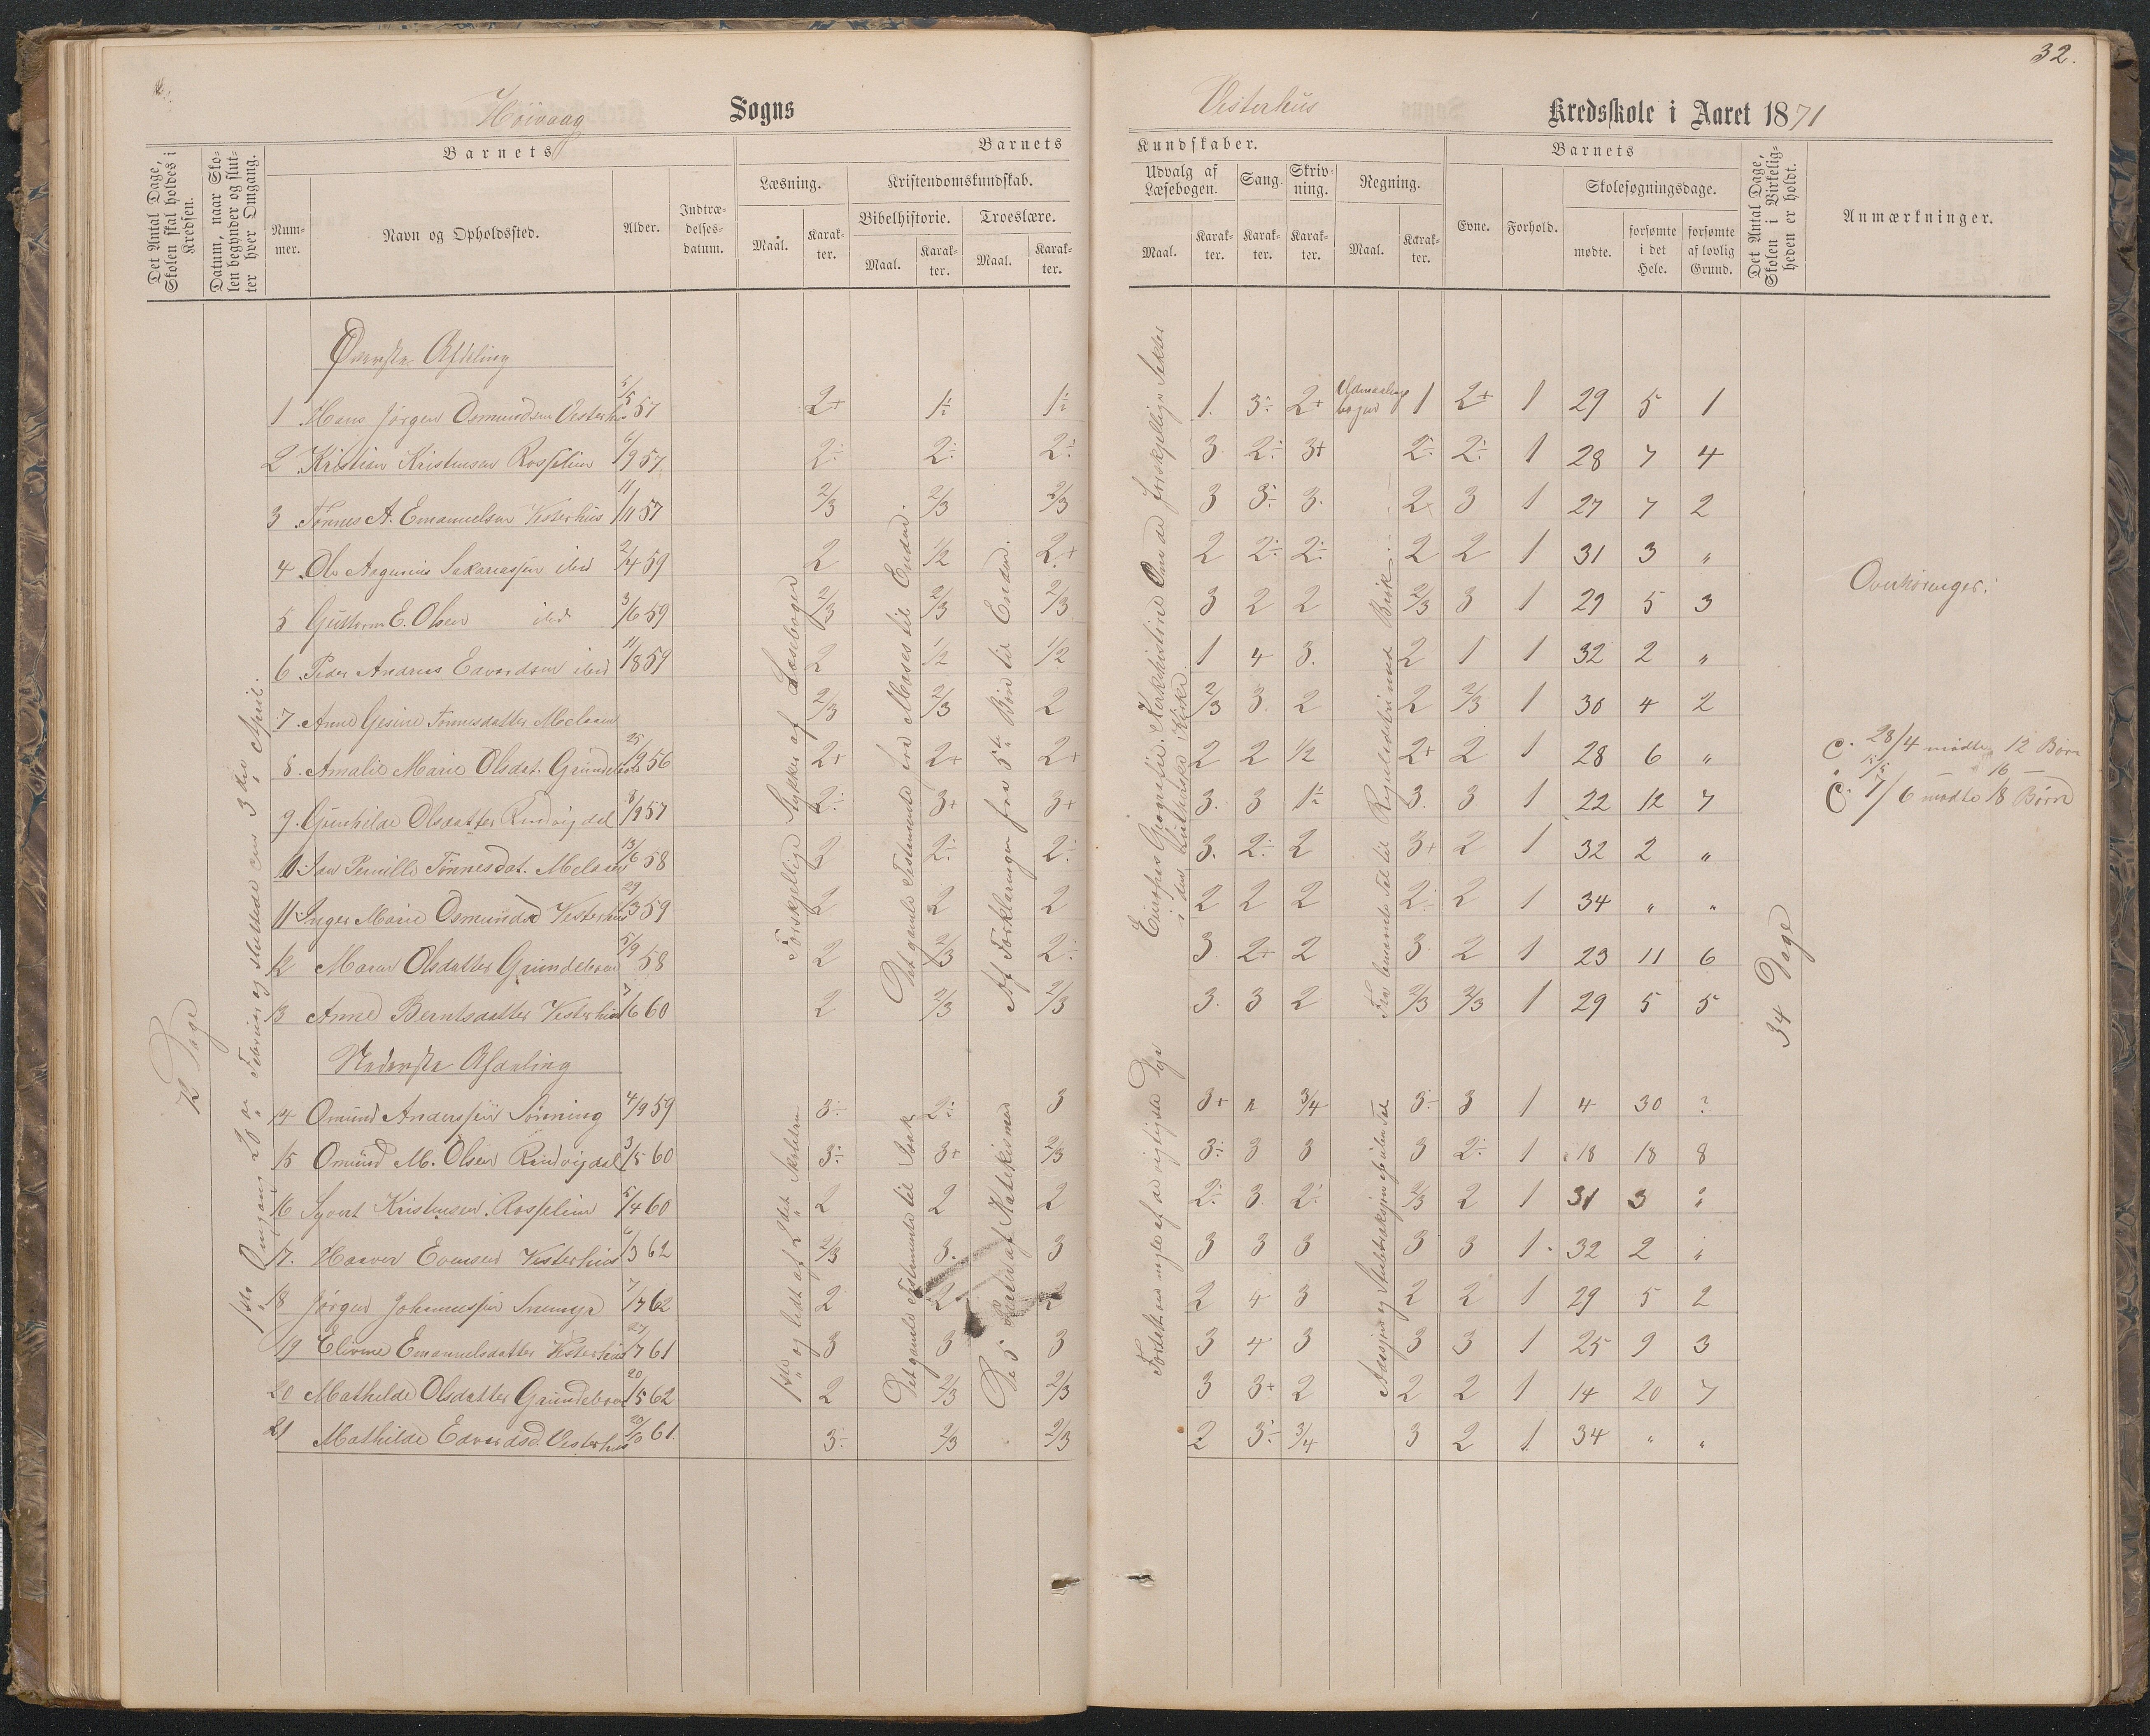 32.
Høivaag Sogns
Vesterhus Kredsskole i Aaret 1871
Det Antal Dage, Skolen skal holdes i Kredsen.
Datum, naar Skolen begynder og slutter hver Omgang.
Barnets
Nummer.
Navn og Opholdssted.
Alder.
Indtrædelsesdatum.
Barnets Kundskaber.
Læsning.
Maal.
Karakter.
Kristendomskundskab.
Bibelhistorie.
Maal.
Karakter.
Troeslære.
Maal.
Karakter.
Udvalg af Læsebogen.
Maal.
Karakter.
Sang.
Karakter.
Skrivning.
Karakter.
Regning.
Maal.
Karakter.
Barnets
Evne.
Forhold.
Skolesøgningsdage.
mødte.
forsømte i det Hele.
forsømte af lovlig Grund.
Det Antal Dage, Skolen i Virkeligheden er holdt.
Anmærkninger.
72 Dage
Februar og sluttede den 3die April.
Øverste Afdeling
Forskjellige Stykker af Læsebogen
Det gamle Testamente fra Moses til Enden.
Af Forklaringen fra 5te Bøn til Enden.
Europas Geografie. Kirkehistorie Om de forskjellige Sekter i den Lutherske Kirke
1 Hans Jørgen Osmundsen Vesterhus 5/5 57 2+ 1÷ 1÷ 1. 3÷ 2+ 1 2+ 1 29 5 1
2 Kristian Kristensen Rosselien 6/9 57 2÷ 2÷ 2÷ 3 2÷ 3+ 2÷ 2÷ 1 28 7 4
3 Tønnes A. Emanuelsen Vesterhus 11/11 57 2/3 2/3 2/3 3 3÷ 3. 2 3 1 27 7 2
4 Ole Augunius Sakariassen ibid 2/4 59 2 1/2 2+ 2 2÷ 2÷ 2 2 1 31 3 "
5 Guttorm E. Olsen ibid 3/6 59 2/3 2/3 2/3 3 2 2 2/3 3 1 29 5 3
6 Peder Andreas Edvardsen ibid 11/8 59 2 1/2 1/2 1 4 3. 2 1 1 32 2 "
7. Anne Gesine Tønnesdatter Melaaen 2/3 2/3 2 2/3 3. 2 2 2/3 1 30 4 2
8. Amalie Marie Olsdat. Grundeland 25/9 56 2+ 2+ 2+ 2 2 1/2 2+ 2 1 28 6 "
9. Gunhilde Olsdatter Rindvigdal 8/9 57 2÷ 3+ 3+ 3. 3 1÷ 3. 3 1 22 12 7
10. Pernille Tønnesdat. Melaaen 13/6 58 2 2÷ 2÷ 3. 2÷ 2 3+ 2 1 32 2 "
11. Inger Marie Osmundsd Vesterhus 29/3 59 2 2 2 2 2 2 2÷ 2 1 34 " "
12 Maren Olsdatter 5/9 58 2 2/3 2÷ 3. 2+ 2 3 2 1 23 11 6
13 Anne Berntsdatter Vesterhus 7/6 60 2 2/3 2/3 3. 3 2 2/3 2/3 1 29 5 5
34 Dage
Nederste Afdeling
Det gamle Testamente til Isak
De 5 Parter af Katekismen
14 Omund Anderssen Sønning 4/9 59 3÷ 2÷ 3 3+ " 3/4 3÷ 3 1 4 30 ?
15 Omund M. Olsen Rindvigdal 3/5 60 3÷ 3+ 2/3 3÷ 3 3 3 2÷ 1 18 18 8
16 Syvert Kristensen Rosselien 5/4 60 2 2 2 2÷ 3. 2÷ 2/3 2 1 31 3 "
17. Haaver Evensen Vesterhus 6/3 62 2/3 3. 3 3 3 3 3 3 1 32 2 "
18 Jørgen Johannessen 7/7 62 2 2 2 2 4 3 2 2 1 29 5 2
19 Elivine Emanuelsdatter Vesterhus 27/7 61 3 3 3 3 4 3 3 3 1 25 9 3
20 Mathilde Olsdatter 20/5 62 2 2/3 2/3 3 3+ 2 2 2 1 14 20 7
21 Mathilde Edvardsd. Vesterhus 20/10 61. 3÷ 2/3 2/3 2 3÷ 3/4 3 2 1 34 " "
Overhøringer:
C. 28/4 mødte 12 Børn
" 15/5 – " 16 –
C. 7/6 mødte 18 Børn